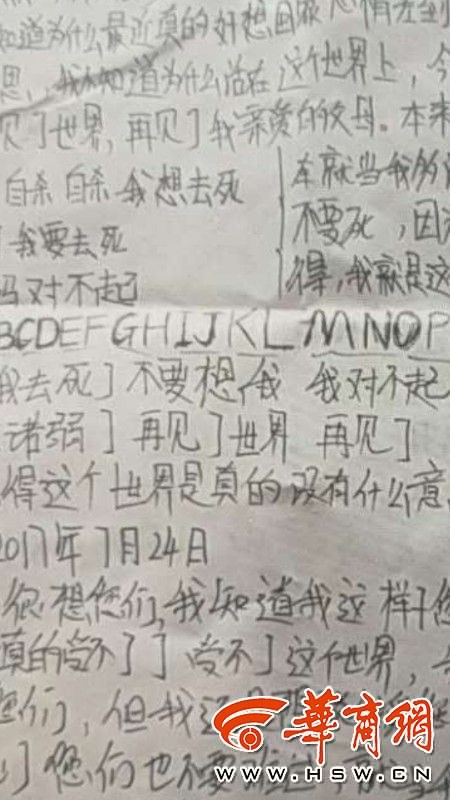 知道为什么最近真的好想回家 心情差到
思,我不知道为什么活在这个世界上,今
见了世界,再见了我亲爱的父母。本来
自杀 自杀 我想去死
我要去死
妈对不起
本就当我
不要死,因
得,我就是这
BCDEFGHIJKLMNOP
我去死了 不要想我 我对不起
诺弱了 再见了世界 再见了
得这个世界是真的没有什么意
2017年7月24日
很想您们,我知道我这样子您
真的受不了了 受不了这个世界,
您们,但我还
了 您们也不要
華商網
WWW.HSW.CN